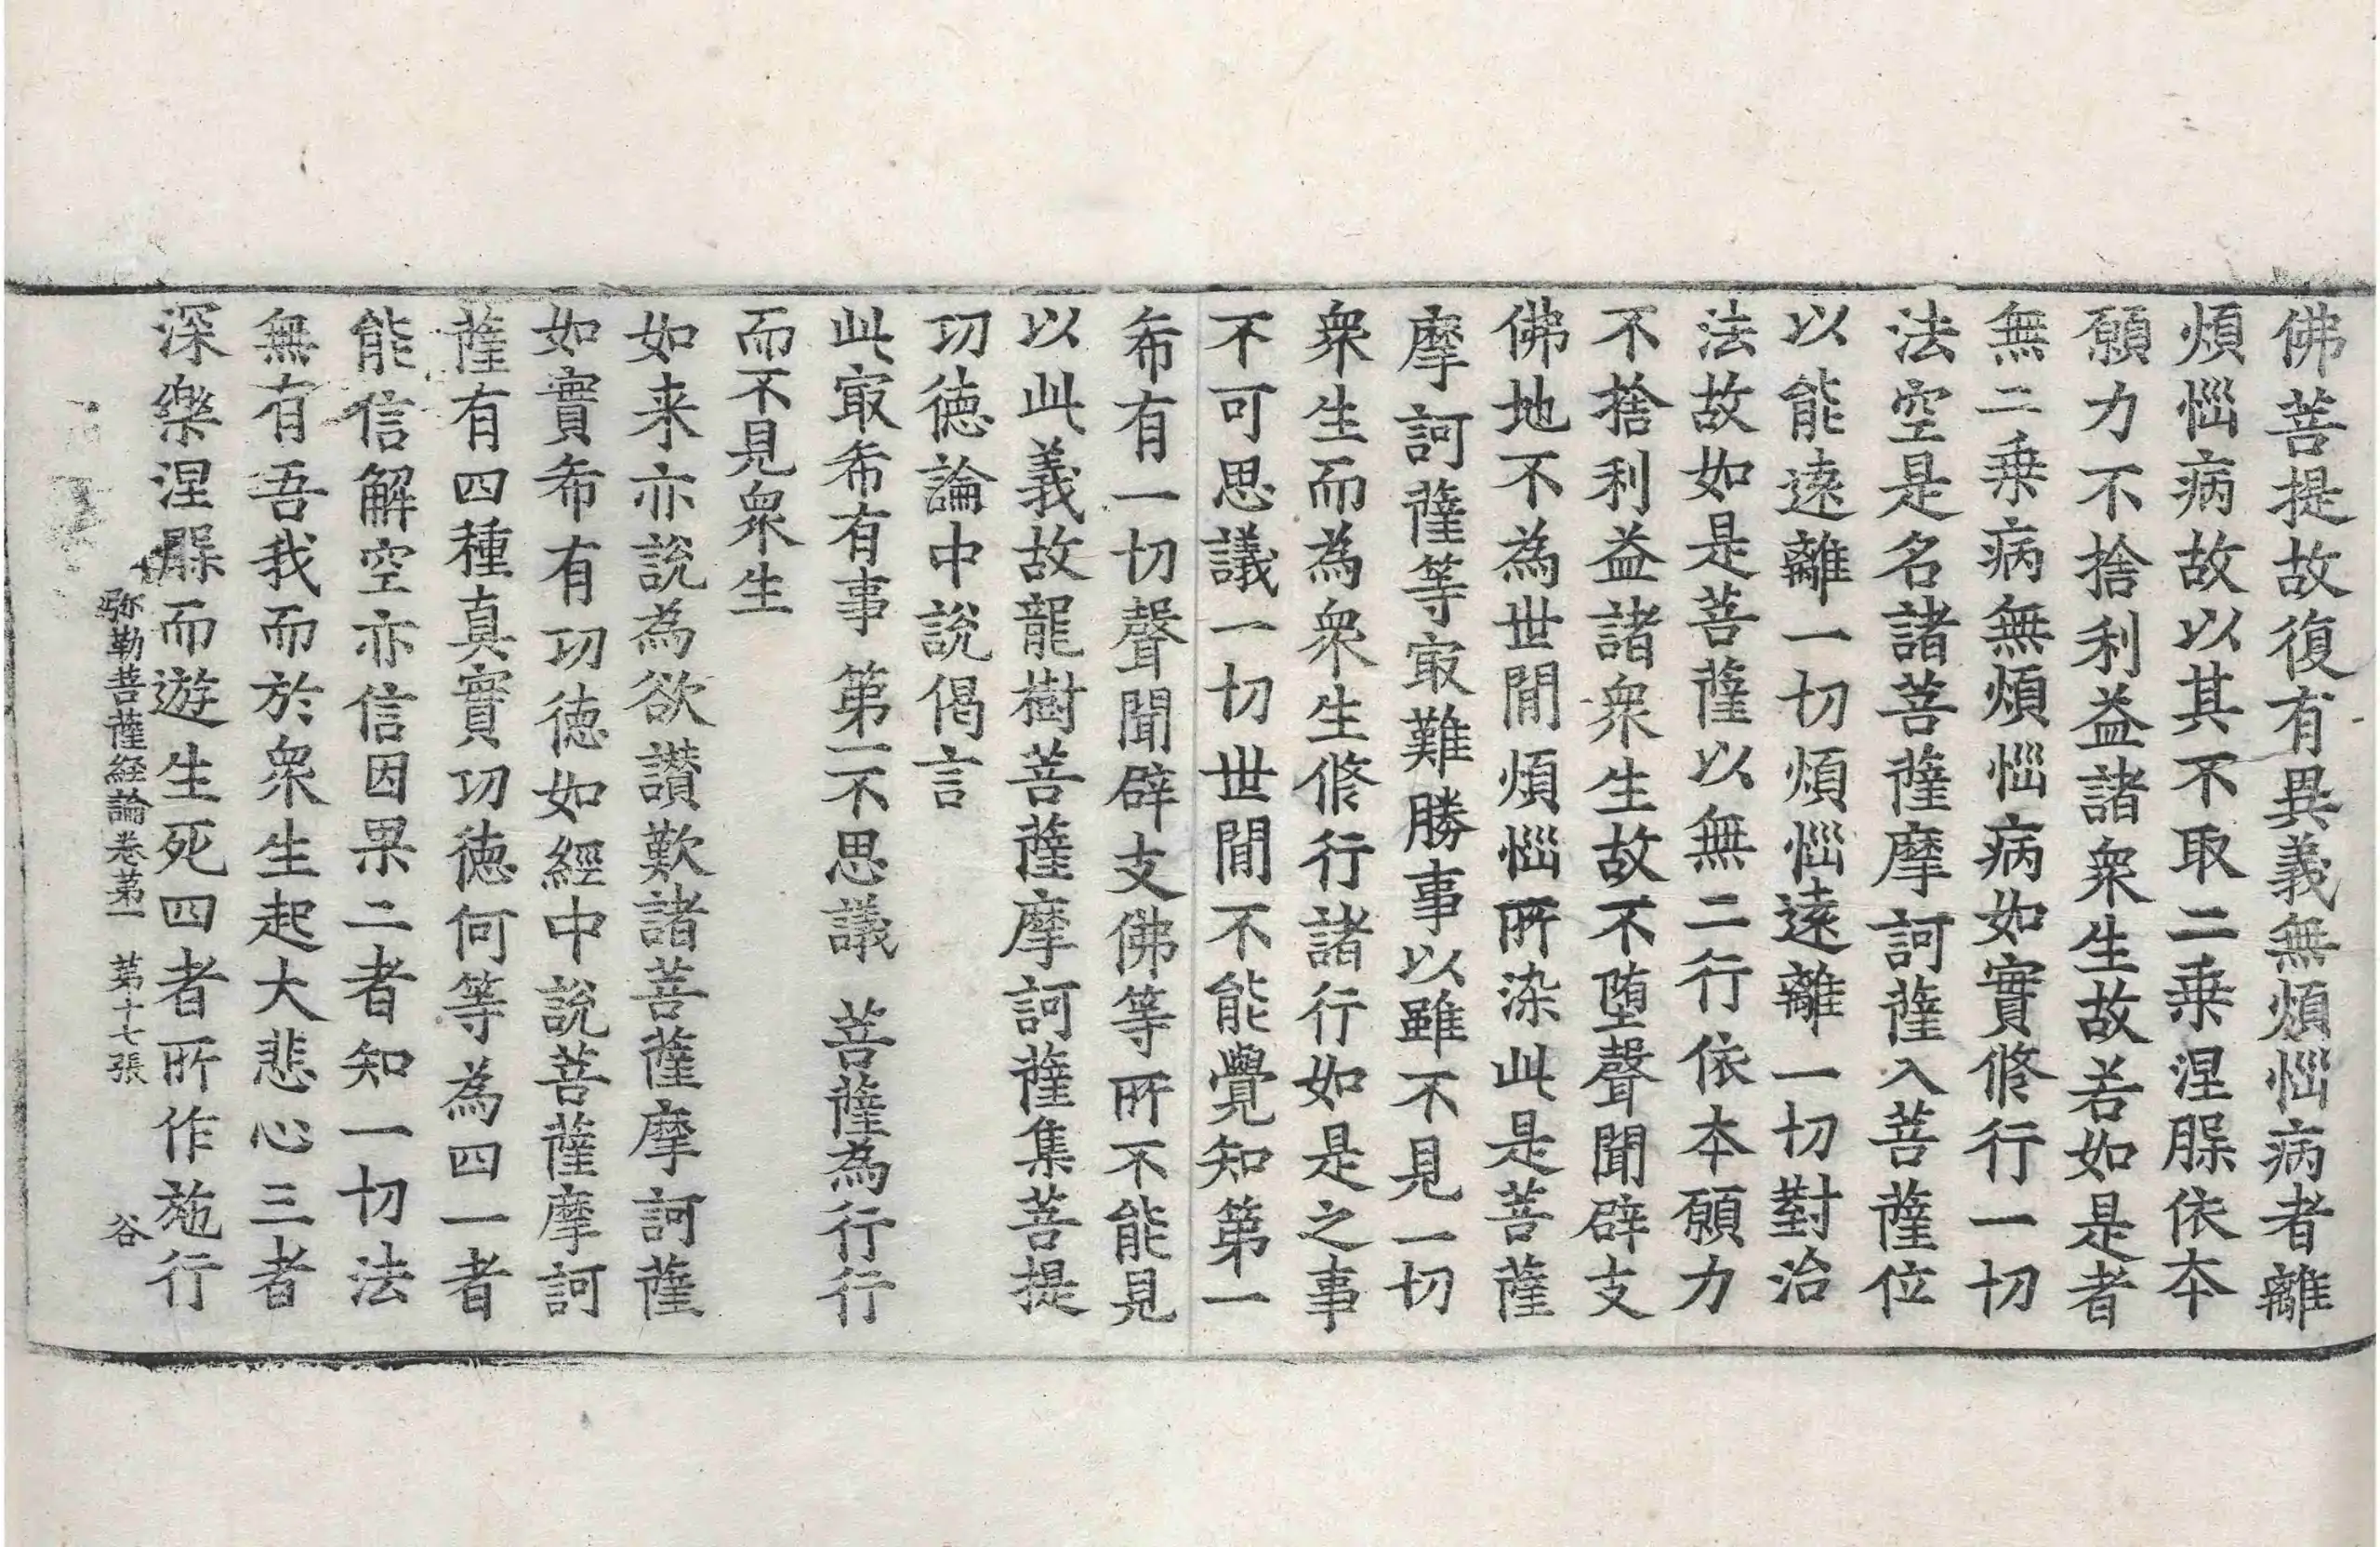 佛菩提故復有異義無煩惱病者離
煩惱病故以其不取二乗涅槃依本
願力不捨利益諸衆生故若如是者
無二乗病無煩惱病如實修行一切
法空是名諸菩薩摩訶薩入菩薩位
以能遠離一切煩惱遠離一切對治
法故如是菩薩以無二行依本願力
不捨利益諸衆生故不堕聲聞辟支
佛地不為世間煩惱所染此是菩薩
摩訶薩等㝡難勝事以雖不見一切
衆生而為衆生修行諸行如是之事
不可思議一切世間不能覺知第一
希有一切聲聞辟支佛等所不能見
以此義故龍樹菩薩摩訶薩集菩提
功徳論中說偈言
此㝡希有事 第一不思議 菩薩為行行
而不見衆生
如来亦說為欲讃歎諸菩薩摩訶薩
如實希有功徳如經中說菩薩摩訶
薩有四種真實功徳何等為四一者
能信解空亦信因果二者知一切法
無有吾我而於衆生起大悲心三者
深樂涅槃而遊生死四者所作施行
弥勒菩薩経論卷苐一 苐十七張 谷